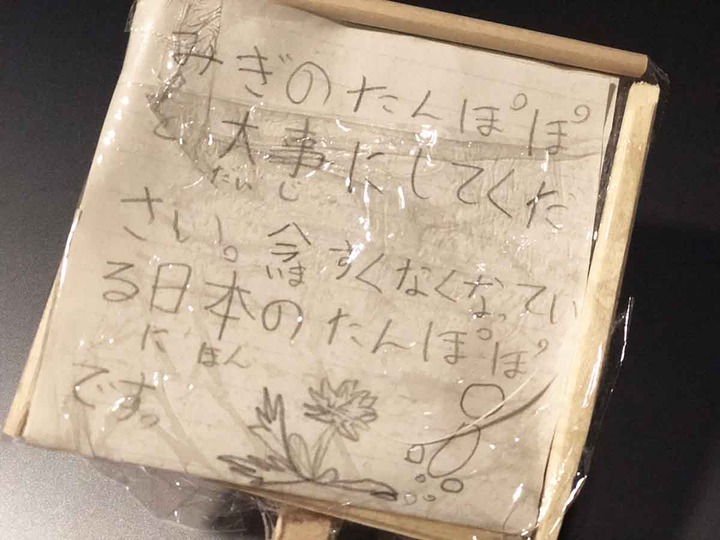 みぎのたんぽぽ
を大事にしてくだ
たいじ
さい。今すくなくなってい
いま
る日本のたんぽぽ
にほん
です。